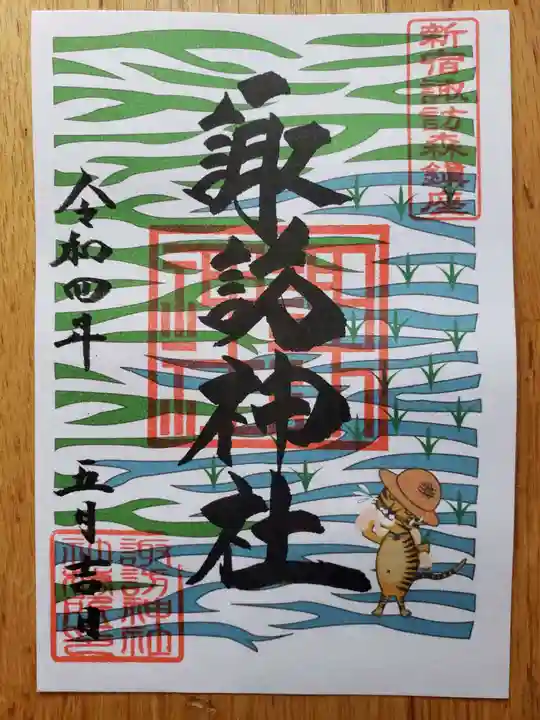 新宿諏訪森鎮座
諏訪神社
令和四年 五月吉日
諏訪神社